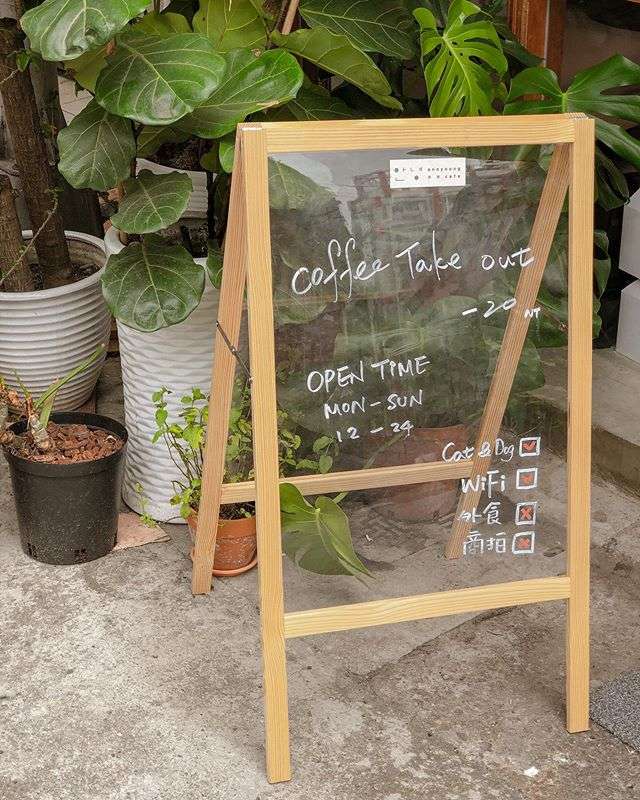 Coffee Take out
-20 NT
OPEN TIME
MON-SUN
12-24
Cat & Dog
WiFi
外食
商拍